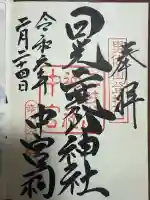 奉拝
日光二荒山神社
中宮祠
令和六年
二月二十四日